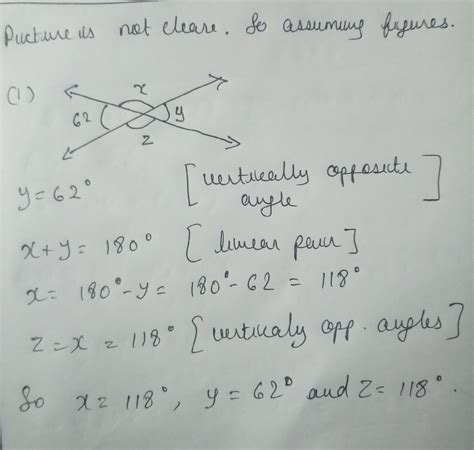 Picture is not cleare. So assuming figures.
(1)
x
62
y
z
y = 62° [vertically opposite angle]
x + y = 180° [linear pair]
x = 180° - y = 180° - 62 = 118°
z = x = 118° [vertically opp. angles]
So x = 118°, y = 62° and z = 118°.